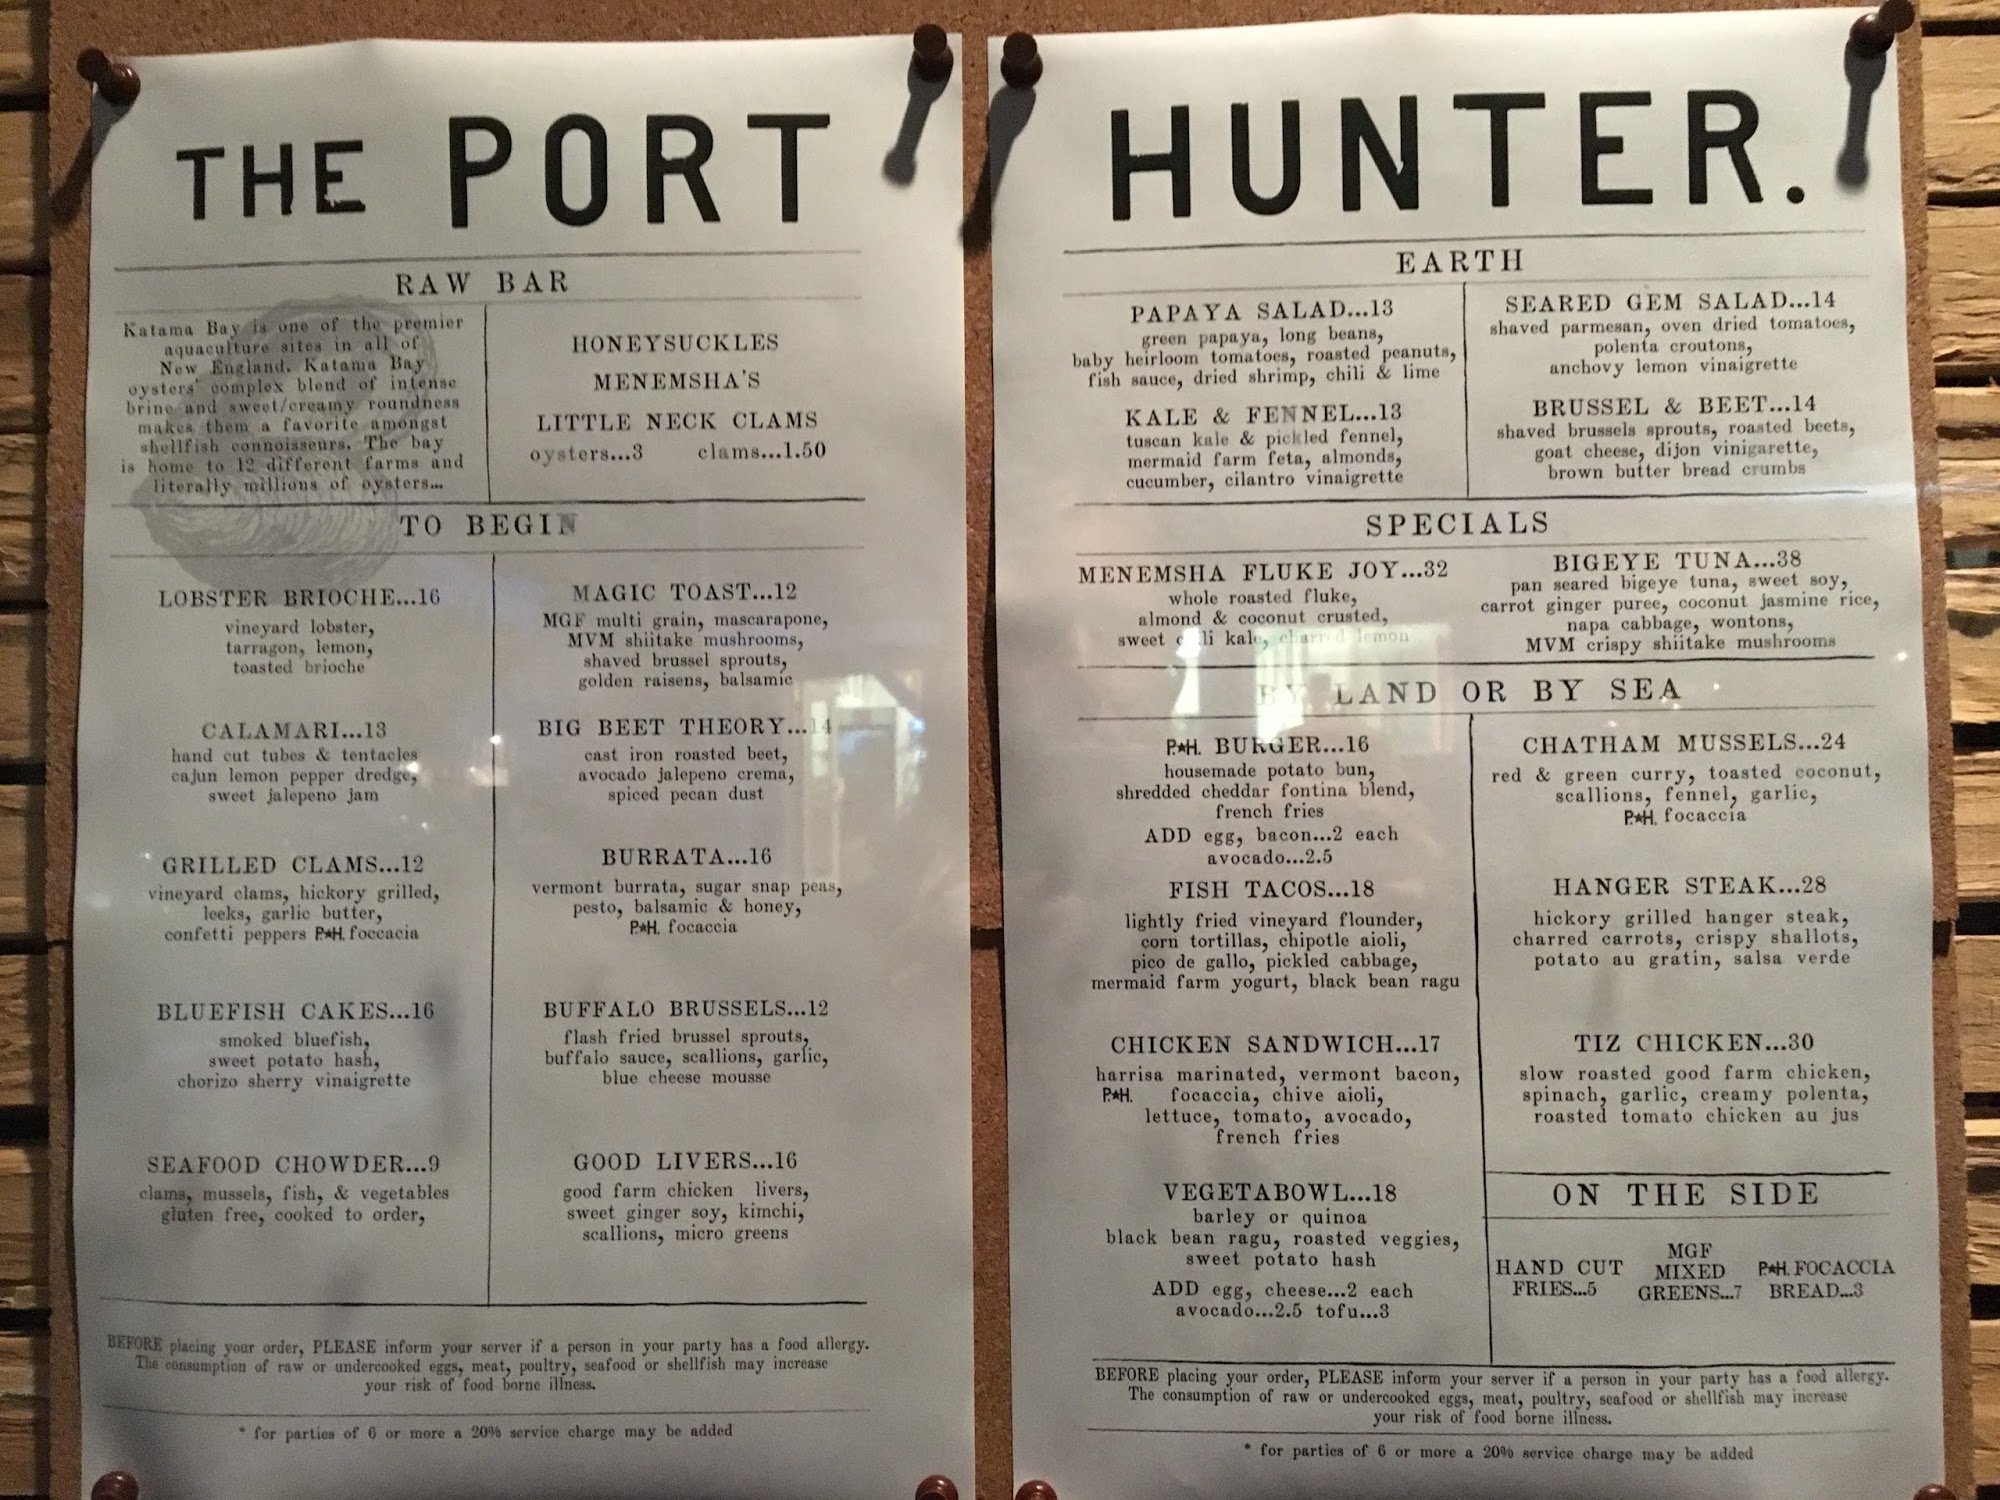 THE PORT
RAW BAR
Katama Bay is one of the premier
aquaculture sites in all of
New England. Katama Bay
oysters' complex blend of intense
brine and sweet/creamy roundness
makes them a favorite amongst
shellfish connoisseurs. The bay
is home to 12 different farms and
literally millions of oysters...
HONEYSUCKLES
MENEMSHA'S
LITTLE NECK CLAMS
oysters...3 clams...1.50
TO BEGIN
LOBSTER BRIOCHE...16
vineyard lobster,
tarragon, lemon,
toasted brioche
CALAMARI...13
hand cut tubes & tentacles
cajun lemon pepper dredge,
sweet jalepeno jam
GRILLED CLAMS...12
vineyard clams, hickory grilled,
leeks, garlic butter,
confetti peppers P★H. foccacia
BLUEFISH CAKES...16
smoked bluefish,
sweet potato hash,
chorizo sherry vinaigrette
SEAFOOD CHOWDER...9
clams, mussels, fish, & vegetables
gluten free, cooked to order,
MAGIC TOAST...12
MGF multi grain, mascarapone,
MVM shiitake mushrooms,
shaved brussel sprouts,
golden raisens, balsamic
BIG BEET THEORY...14
cast iron roasted beet,
avocado jalepeno crema,
spiced pecan dust
BURRATA...16
vermont burrata, sugar snap peas,
pesto, balsamic & honey,
P★H. focaccia
BUFFALO BRUSSELS...12
flash fried brussel sprouts,
buffalo sauce, scallions, garlic,
blue cheese mousse
GOOD LIVERS...16
good farm chicken livers,
sweet ginger soy, kimchi,
scallions, micro greens
BEFORE placing your order, PLEASE inform your server if a person in your party has a food allergy.
The consumption of raw or undercooked eggs, meat, poultry, seafood or shellfish may increase
your risk of food borne illness.
* for parties of 6 or more a 20% service charge may be added
HUNTER.
EARTH
PAPAYA SALAD...13
green papaya, long beans,
baby heirloom tomatoes, roasted peanuts,
fish sauce, dried shrimp, chili & lime
KALE & FENNEL...13
tuscan kale & pickled fennel,
mermaid farm feta, almonds,
cucumber, cilantro vinaigrette
SEARED GEM SALAD...14
shaved parmesan, oven dried tomatoes,
polenta croutons,
anchovy lemon vinaigrette
BRUSSEL & BEET...14
shaved brussels sprouts, roasted beets,
goat cheese, dijon vinigarette,
brown butter bread crumbs
SPECIALS
MENEMSHA FLUKE JOY...32
whole roasted fluke,
almond & coconut crusted,
sweet chili kale, charred lemon
BIGEYE TUNA...38
pan seared bigeye tuna, sweet soy,
carrot ginger puree, coconut jasmine rice,
napa cabbage, wontons,
MVM crispy shiitake mushrooms
BY LAND OR BY SEA
P★H. BURGER...16
housemade potato bun,
shredded cheddar fontina blend,
french fries
ADD egg, bacon...2 each
avocado...2.5
FISH TACOS...18
lightly fried vineyard flounder,
corn tortillas, chipotle aioli,
pico de gallo, pickled cabbage,
mermaid farm yogurt, black bean ragu
CHICKEN SANDWICH...17
harrisa marinated, vermont bacon,
P★H. focaccia, chive aioli,
lettuce, tomato, avocado,
french fries
VEGETABOWL...18
barley or quinoa
black bean ragu, roasted veggies,
sweet potato hash
ADD egg, cheese...2 each
avocado...2.5 tofu...3
CHATHAM MUSSELS...24
red & green curry, toasted coconut,
scallions, fennel, garlic,
P★H. focaccia
HANGER STEAK...28
hickory grilled hanger steak,
charred carrots, crispy shallots,
potato au gratin, salsa verde
TIZ CHICKEN...30
slow roasted good farm chicken,
spinach, garlic, creamy polenta,
roasted tomato chicken au jus
ON THE SIDE
HAND CUT
FRIES...5
MGF
MIXED
GREENS...7
P★H. FOCACCIA
BREAD...3
BEFORE placing your order, PLEASE inform your server if a person in your party has a food allergy.
The consumption of raw or undercooked eggs, meat, poultry, seafood or shellfish may increase
your risk of food borne illness.
* for parties of 6 or more a 20% service charge may be added